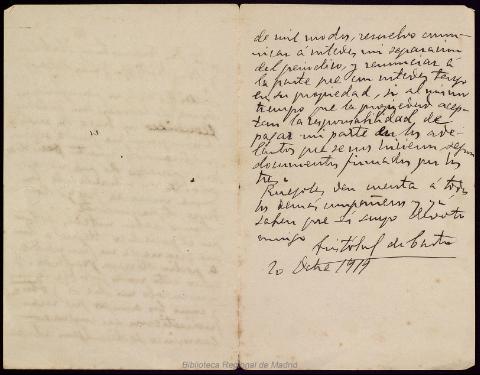 de mil modos, resuelvo comu-
nicar á ustedes mi separacion
del periodico, y renunciar á
la parte que con ustedes tengo
en su propiedad, si al mismo
tiempo que la propiedad acep-
tan la responsabilidad, de
pagar mi parte en los ade-
lantos que se nos hicieron segun
documentos firmados por los
tres.
Ruegoles den cuenta á todos
los demás compañeros y ya
saben que es suyo devoto
amigo Cristóbal de Castro
20 Octre 1919
Biblioteca Regional de Madrid